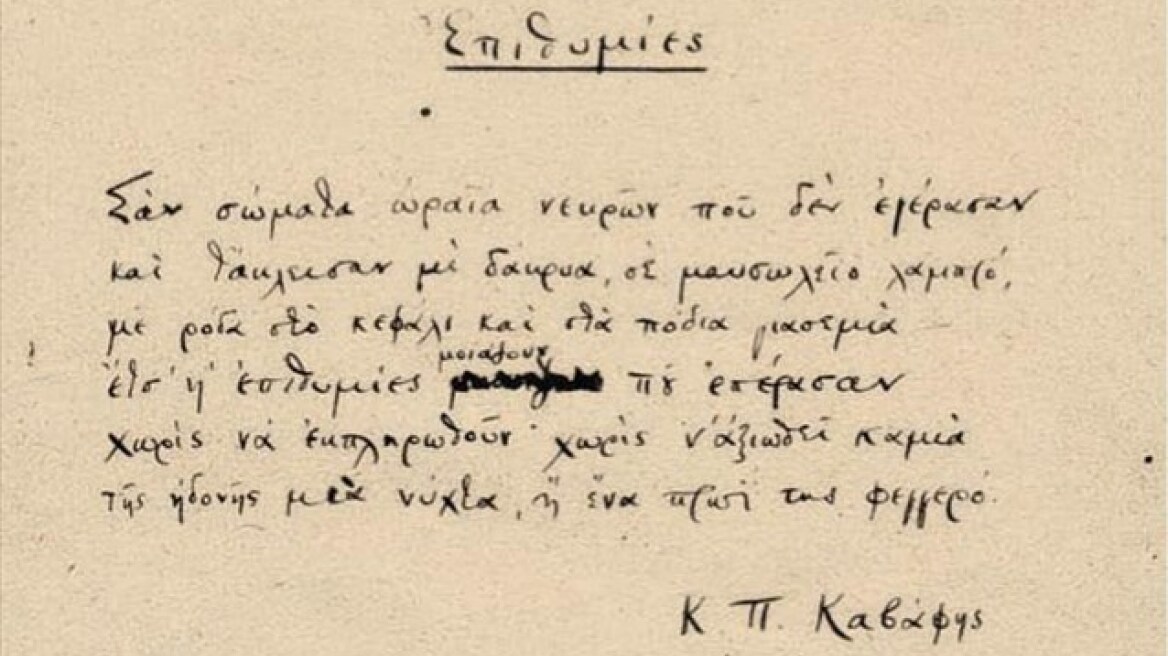 Ἐπιθυμίες
Σὰν σώματα ὡραῖα νεκρῶν ποῦ δὲν ἐγέρασαν
καὶ τἄκλεισαν μὲ δάκρυα, σὲ μαυσωλεῖο λαμπρό,
μὲ ρόδα στὸ κεφάλι καὶ στὰ πόδια γιασεμιὰ
ἔτσ' ἡ ἐπιθυμίες μοιάζουν ποῦ ἐπέρασαν
χωρὶς νὰ ἐκπληρωθοῦν· χωρὶς ν' ἀξιωθεῖ καμιὰ
τῆς ἡδονῆς μιὰ νύχτα, ἢ ἕνα πρωῒ της φεγγερό.
Κ. Π. Καβάφης